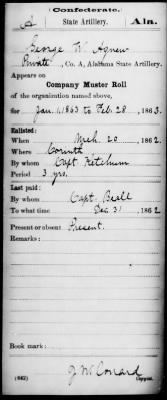 (Confederate.)
A State Artillery. Ala.
George W. Agnew
Private, Co. A, Alabama State Artillery.
Appears on
Company Muster Roll
of the organization named above,
for Jan. 1, 1863 to Feb. 28, 1863.
Enlisted:
When Mch. 20, 1862.
Where Corinth
By whom Capt Ketchum
Period 3 yrs.
Last paid:
By whom Capt. Beall
To what time Dec 31, 1862.
Present or absent Present.
Remarks:
Book mark:
(642) J W Conard
Copyist.